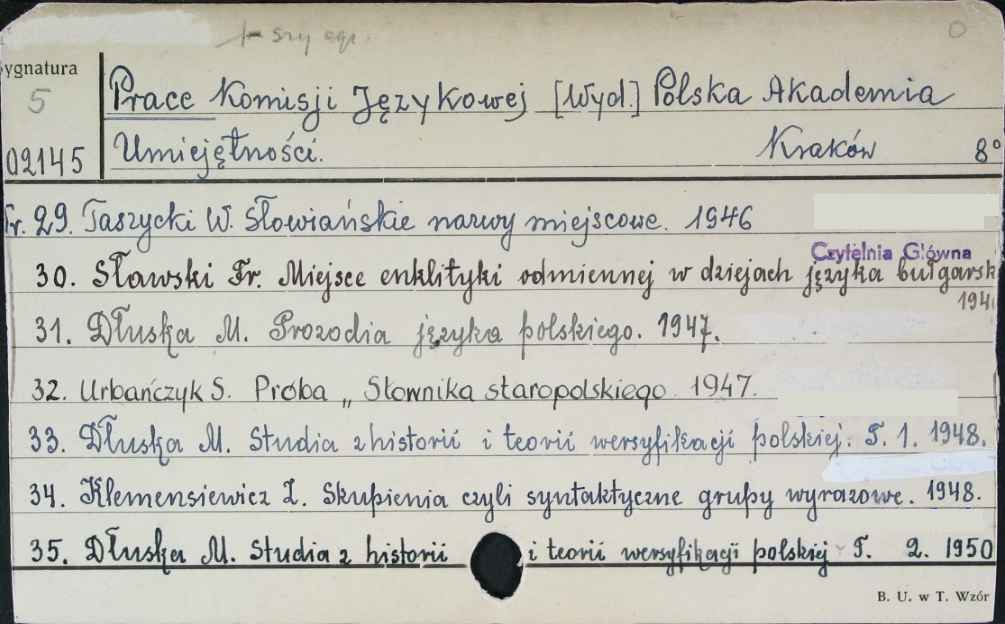 + szy egz.
O
ygnatura
5
02145
Prace Komisji Językowej [Wyd.] Polska Akademia
Umiejętności. Kraków 8°
r. 29. Taszycki W. Słowiańskie nazwy miejscowe. 1946
Czytelnia Główna
30. Sławski Fr. Miejsce enklityki odmiennej w dziejach języka bułgarsk
194
31. Dłuska M. Prozodia języka polskiego. 1947.
32. Urbańczyk S. Próba „ Słownika staropolskiego. 1947.
33. Dłuska M. Studia z historii i teorii wersyfikacji polskiej. T. 1. 1948.
34. Klemensiewicz Z. Skupienia czyli syntaktyczne grupy wyrazowe. 1948.
35. Dłuska M. Studia z historii i teorii wersyfikacji polskiej T. 2. 1950
B. U. w T. Wzór